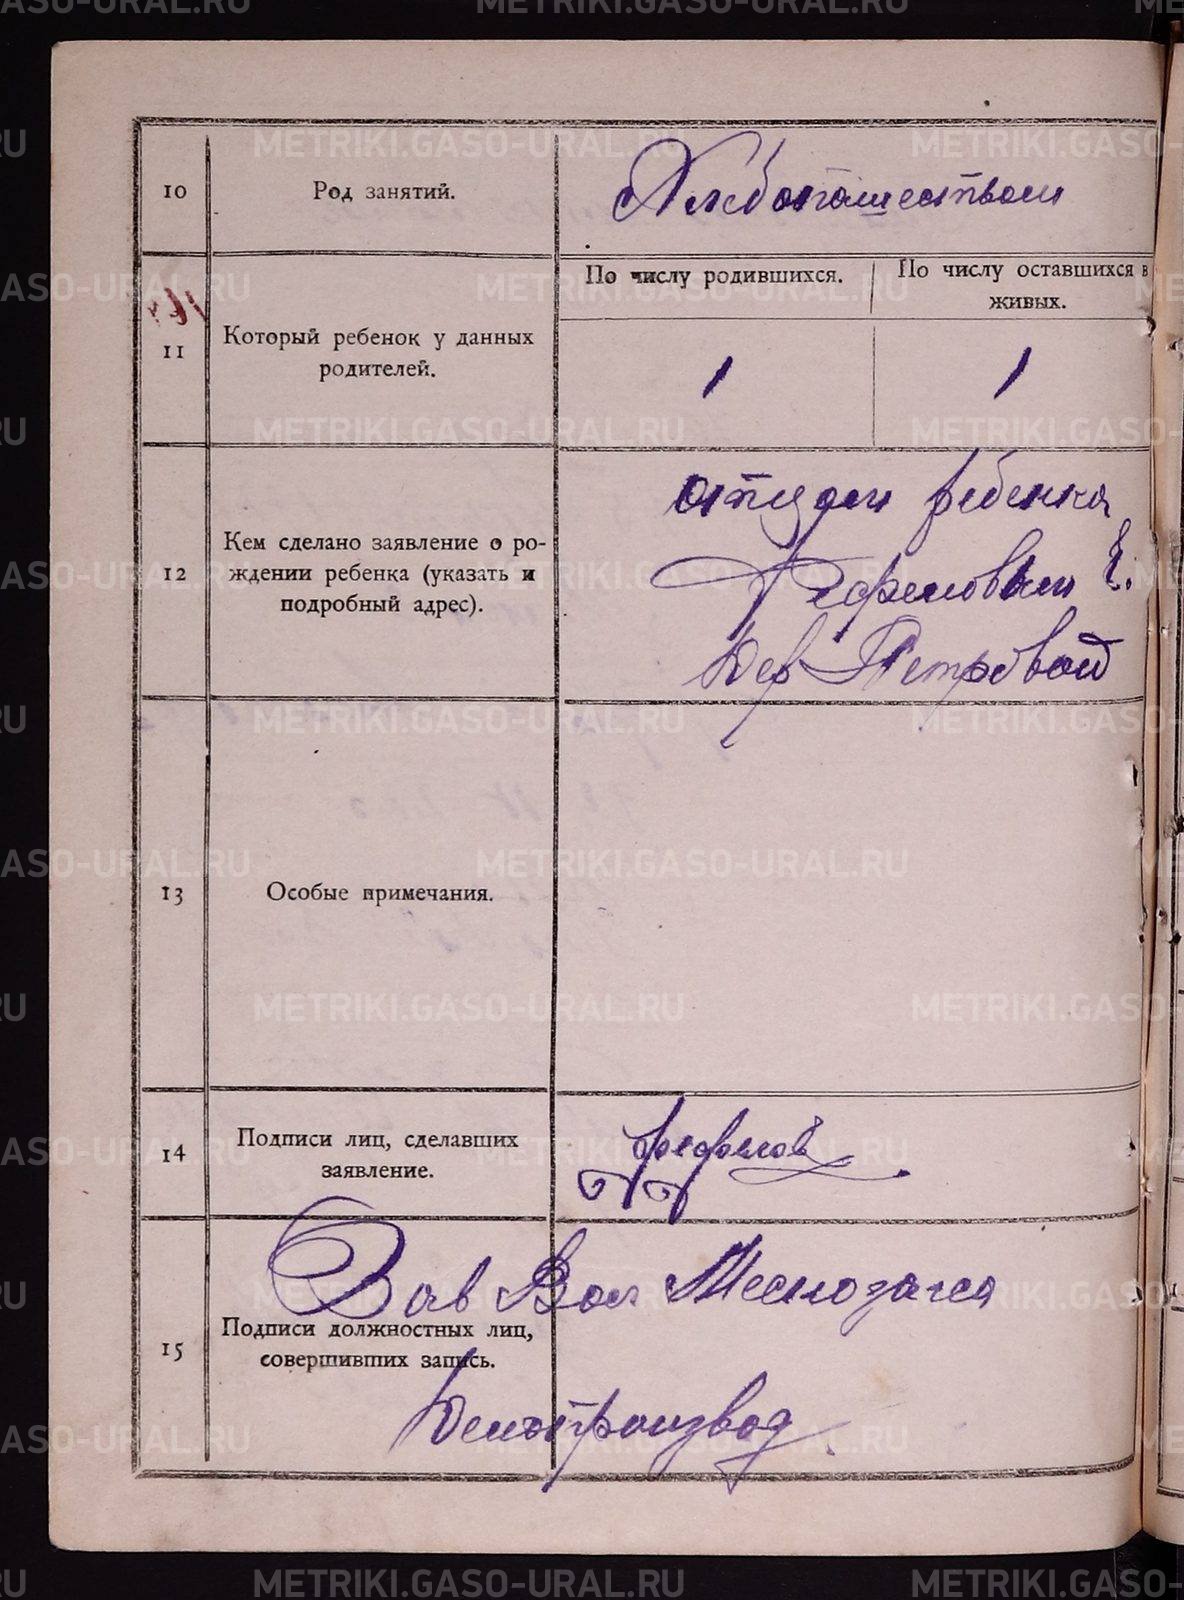 10
Род занятий.
Хлебопашеством
11
Который ребенок у данных
родителей.
По числу родившихся.
По числу оставшихся в
живых.
1
1
12
Кем сделано заявление о ро-
ждении ребенка (указать и
подробный адрес).
отцом ребенка
Ефремовым Е.
Дер Петровой
13
Особые примечания.
14
Подписи лиц, сделавших
заявление.
Ефремов
15
Подписи должностных лиц,
совершивших запись.
Зав Вол Местозагса
Делопроизвод
METRIKI.GASO-URAL.RU